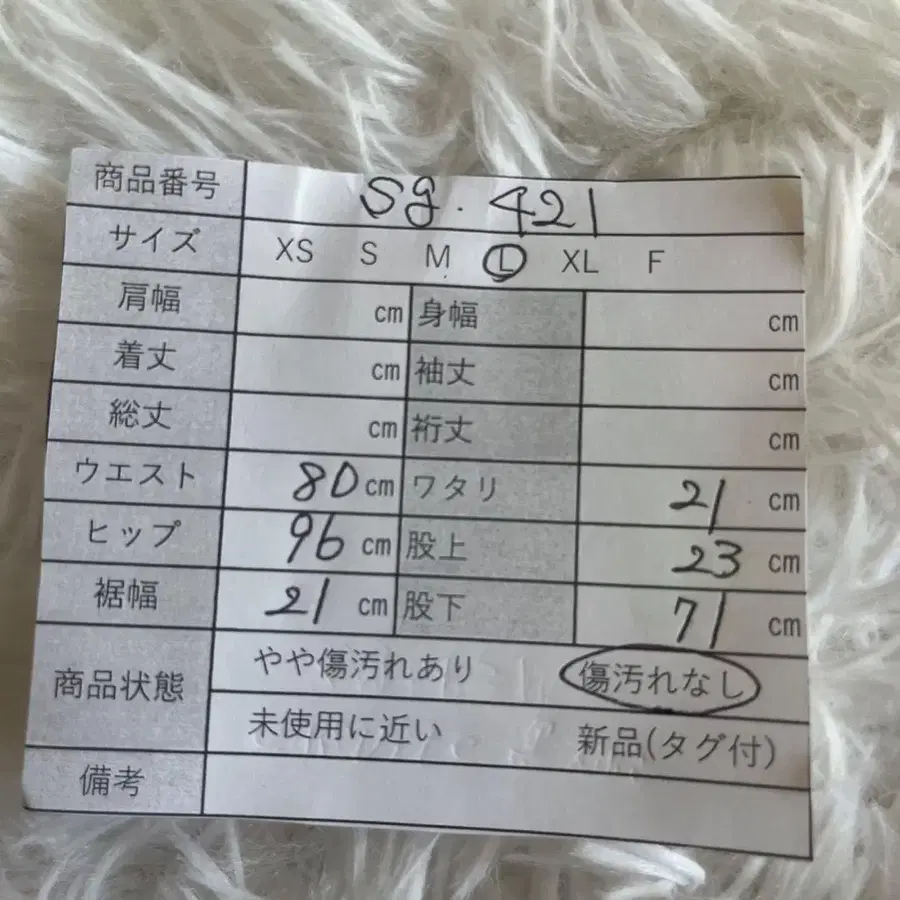 商品番号 sg. 421
サイズ XS S M L XL F
肩幅 cm 身幅 cm
着丈 cm 袖丈 cm
総丈 cm 裄丈 cm
ウエスト 80 cm ワタリ 21 cm
ヒップ 96 cm 股上 23 cm
裾幅 21 cm 股下 71 cm
商品状態 やや傷汚れあり 傷汚れなし
未使用に近い 新品(タグ付)
備考